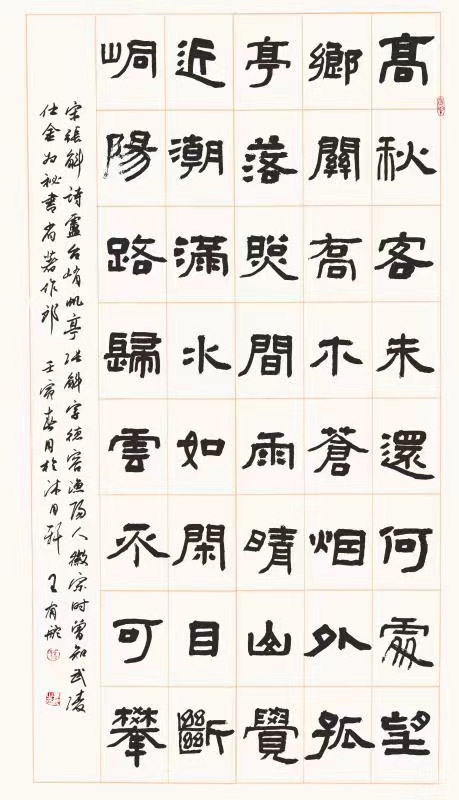 髙秋客未還何處望
鄉關高木蒼烟外孤
亭落照間雨晴山覺
近潮滿水如閑目斷
峒陽路歸雲不可攀
宋張斛詩盧台峭帆亭 張斛字德容漁陽人徽宗时曾知武陵
仕金为秘書省著作郎 壬寅春月於沐日軒 王有